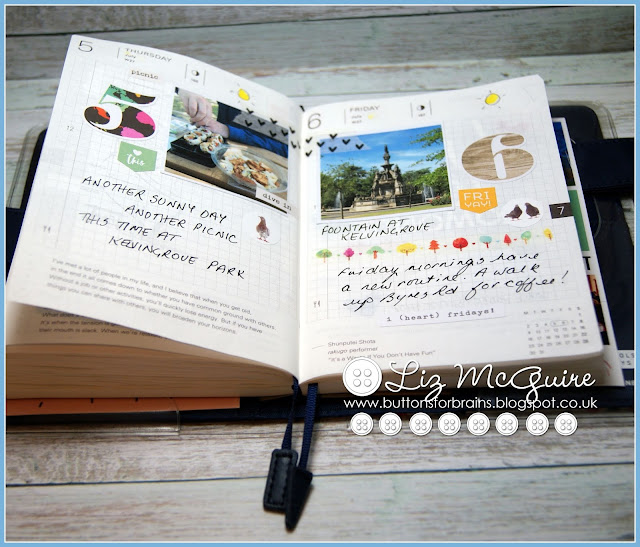 5
THURSDAY
July
picnic
12
this
dive in
ANOTHER SUNNY DAY
ANOTHER PICNIC
THIS TIME AT
KELVINGROVE PARK
I've met a lot of people in my life, and I believe that when you get old,
in the end it all comes down to whether you have common ground with others.
If you have
things you can share with others, you will broaden your horizons.
6
FRIDAY
July
6
FRI
YAY!
7
FOUNTAIN AT
KELVINGROVE
Friday mornings have
a new routine. A walk
up Byres Rd for coffee!
i {heart} fridays!
Shunputei Shota
rakugo performer
"It's a Waste If You Don't Have Fun"
Liz McGuire
www.buttonsforbrains.blogspot.co.uk